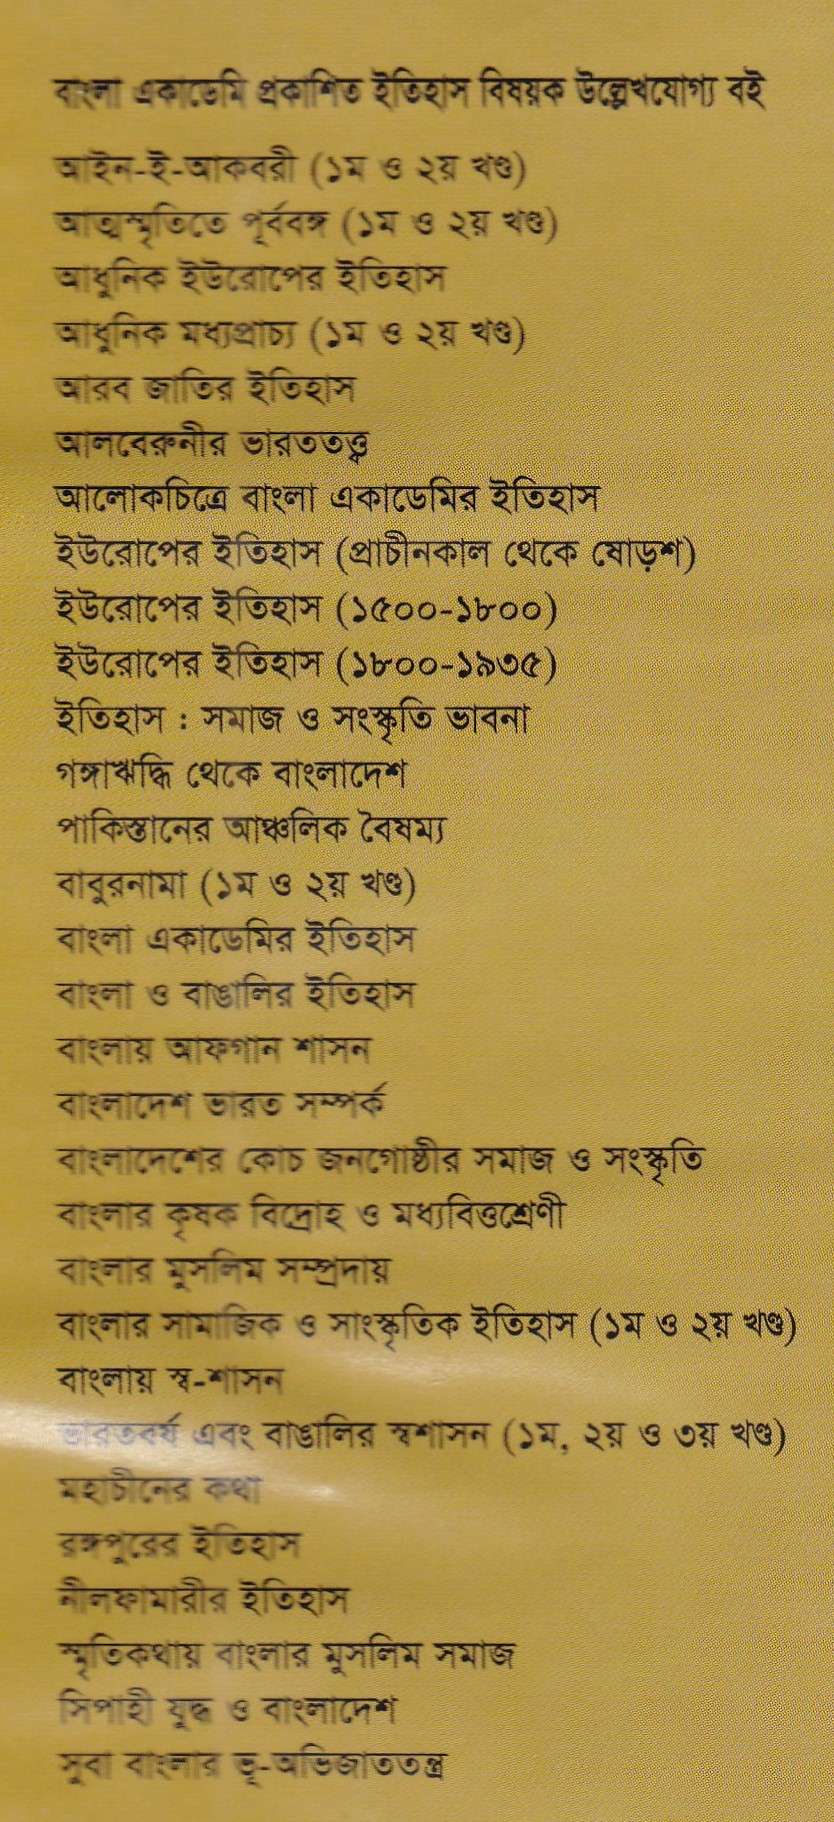 বাংলা একাডেমি প্রকাশিত ইতিহাস বিষয়ক উল্লেখযোগ্য বই
আইন-ই-আকবরী (১ম ও ২য় খণ্ড)
আত্মস্মৃতিতে পূর্ববঙ্গ (১ম ও ২য় খণ্ড)
আধুনিক ইউরোপের ইতিহাস
আধুনিক মধ্যপ্রাচ্য (১ম ও ২য় খণ্ড)
আরব জাতির ইতিহাস
আলবেরুনীর ভারততত্ত্ব
আলোকচিত্রে বাংলা একাডেমির ইতিহাস
ইউরোপের ইতিহাস (প্রাচীনকাল থেকে ষোড়শ)
ইউরোপের ইতিহাস (১৫০০-১৮০০)
ইউরোপের ইতিহাস (১৮০০-১৯৩৫)
ইতিহাস : সমাজ ও সংস্কৃতি ভাবনা
গঙ্গাঋদ্ধি থেকে বাংলাদেশ
পাকিস্তানের আঞ্চলিক বৈষম্য
বাবুরনামা (১ম ও ২য় খণ্ড)
বাংলা একাডেমির ইতিহাস
বাংলা ও বাঙালির ইতিহাস
বাংলায় আফগান শাসন
বাংলাদেশ ভারত সম্পর্ক
বাংলাদেশের কোচ জনগোষ্ঠীর সমাজ ও সংস্কৃতি
বাংলার কৃষক বিদ্রোহ ও মধ্যবিত্তশ্রেণী
বাংলার মুসলিম সম্প্রদায়
বাংলার সামাজিক ও সাংস্কৃতিক ইতিহাস (১ম ও ২য় খণ্ড)
বাংলায় স্ব-শাসন
ভারতবর্ষ এবং বাঙালির স্বশাসন (১ম, ২য় ও ৩য় খণ্ড)
মহাচীনের কথা
রঙ্গপুরের ইতিহাস
নীলফামারীর ইতিহাস
স্মৃতিকথায় বাংলার মুসলিম সমাজ
সিপাহী যুদ্ধ ও বাংলাদেশ
সুবা বাংলার ভূ-অভিজাততন্ত্র